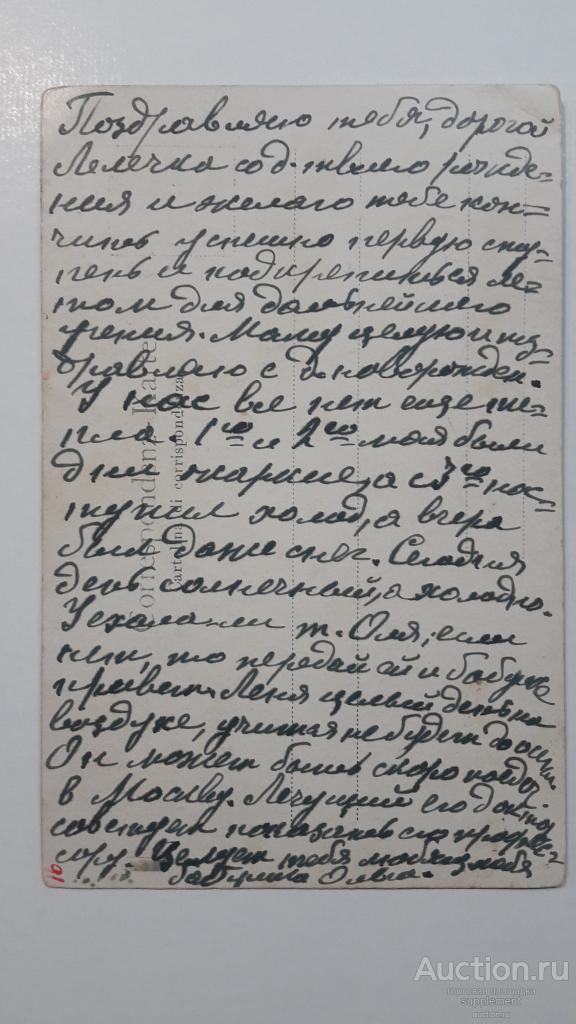 Поздравляю тебя, дорогая
Лелечка со д-твоего рожде-
ния и желаю тебе кон-
чить успешно первую сту-
пень и подкрепиться ле-
том для дальнейшего
учения. Маму целую и поз-
дравляю с д. новорожден.
У нас все нет еще те-
пла. 1го и 2го мая были
дни жаркие, а с 3го нас-
тупил холод, а вчера
был даже снег. Сегодня
день солнечный, а холодно.
Уехала-ли т. Оля, если
нет, то передай ей и бабуле
привет. Леня целый день на
воздухе, учиться не будет до осени
Он может быть скоро поедет
в Москву. Лечущий его доктор
советует показать его профес-
сору. Целует тебя любящ. тебя
бабушка Ольга.
Correspondenz-Karte
Cartolina di corrispondenza
Auction.ru
торговая площадка
supplement
auction.ru